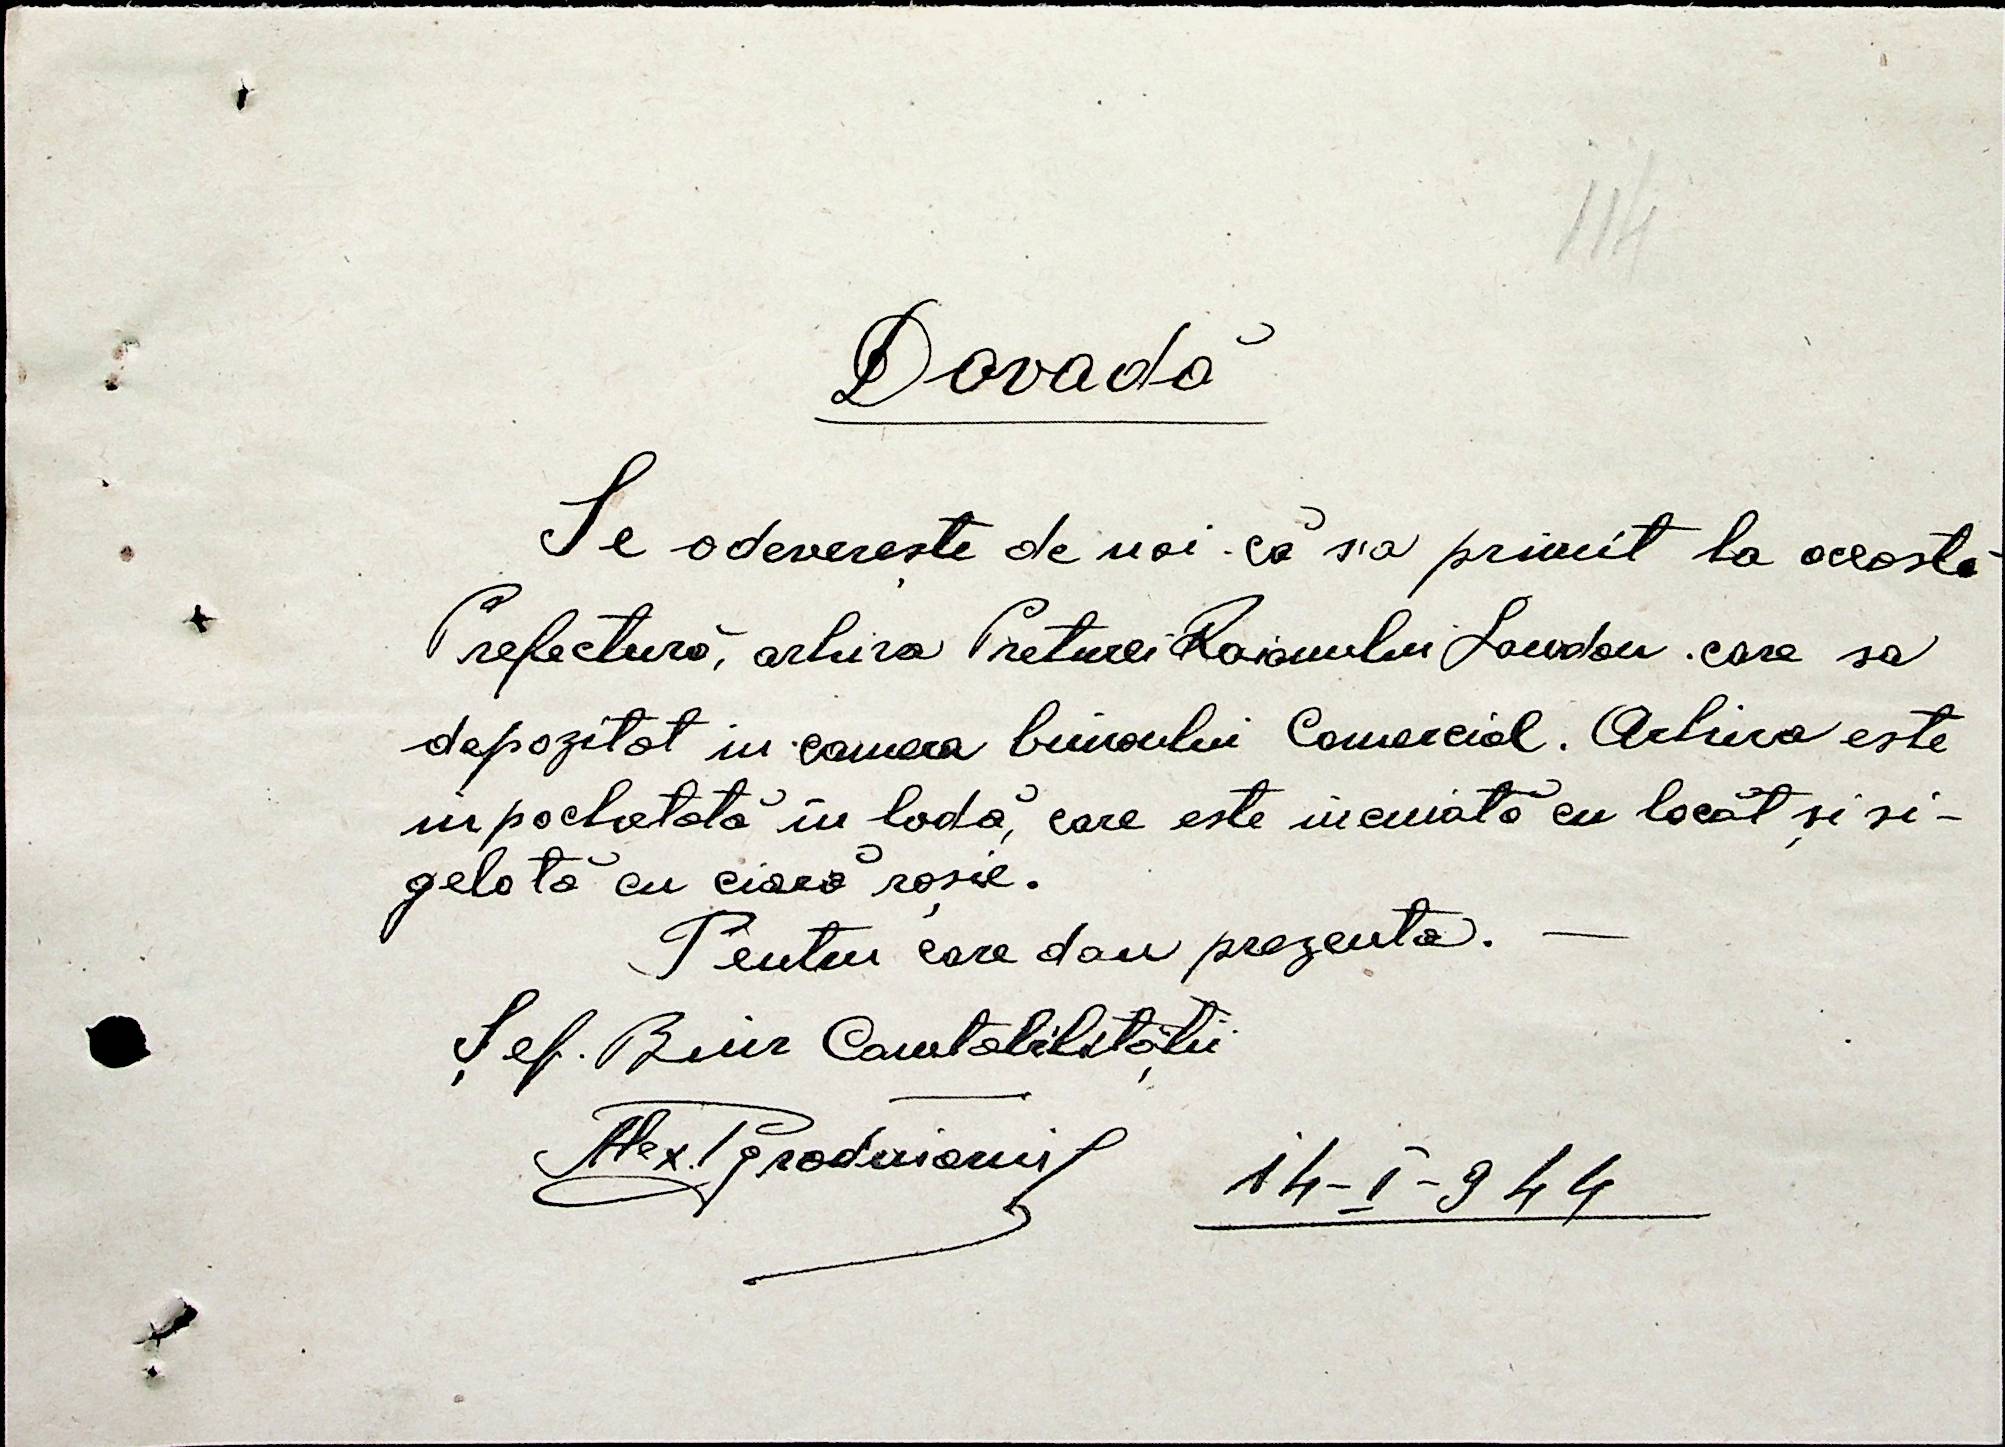 114
Dovadă
Se adeverește de noi că s'a primit la această
Prefectură, arhiva Preturei Raionului Landau care sa
depozitat in camera biuroului Comercial. Arhiva este
inpachetată in ladă, care este incuiată cu lacăt și si-
gelată cu ciară roșie.
Pentru care dau prezenta. —
Șef. Biur Contabilității
Alex.
14-I-944